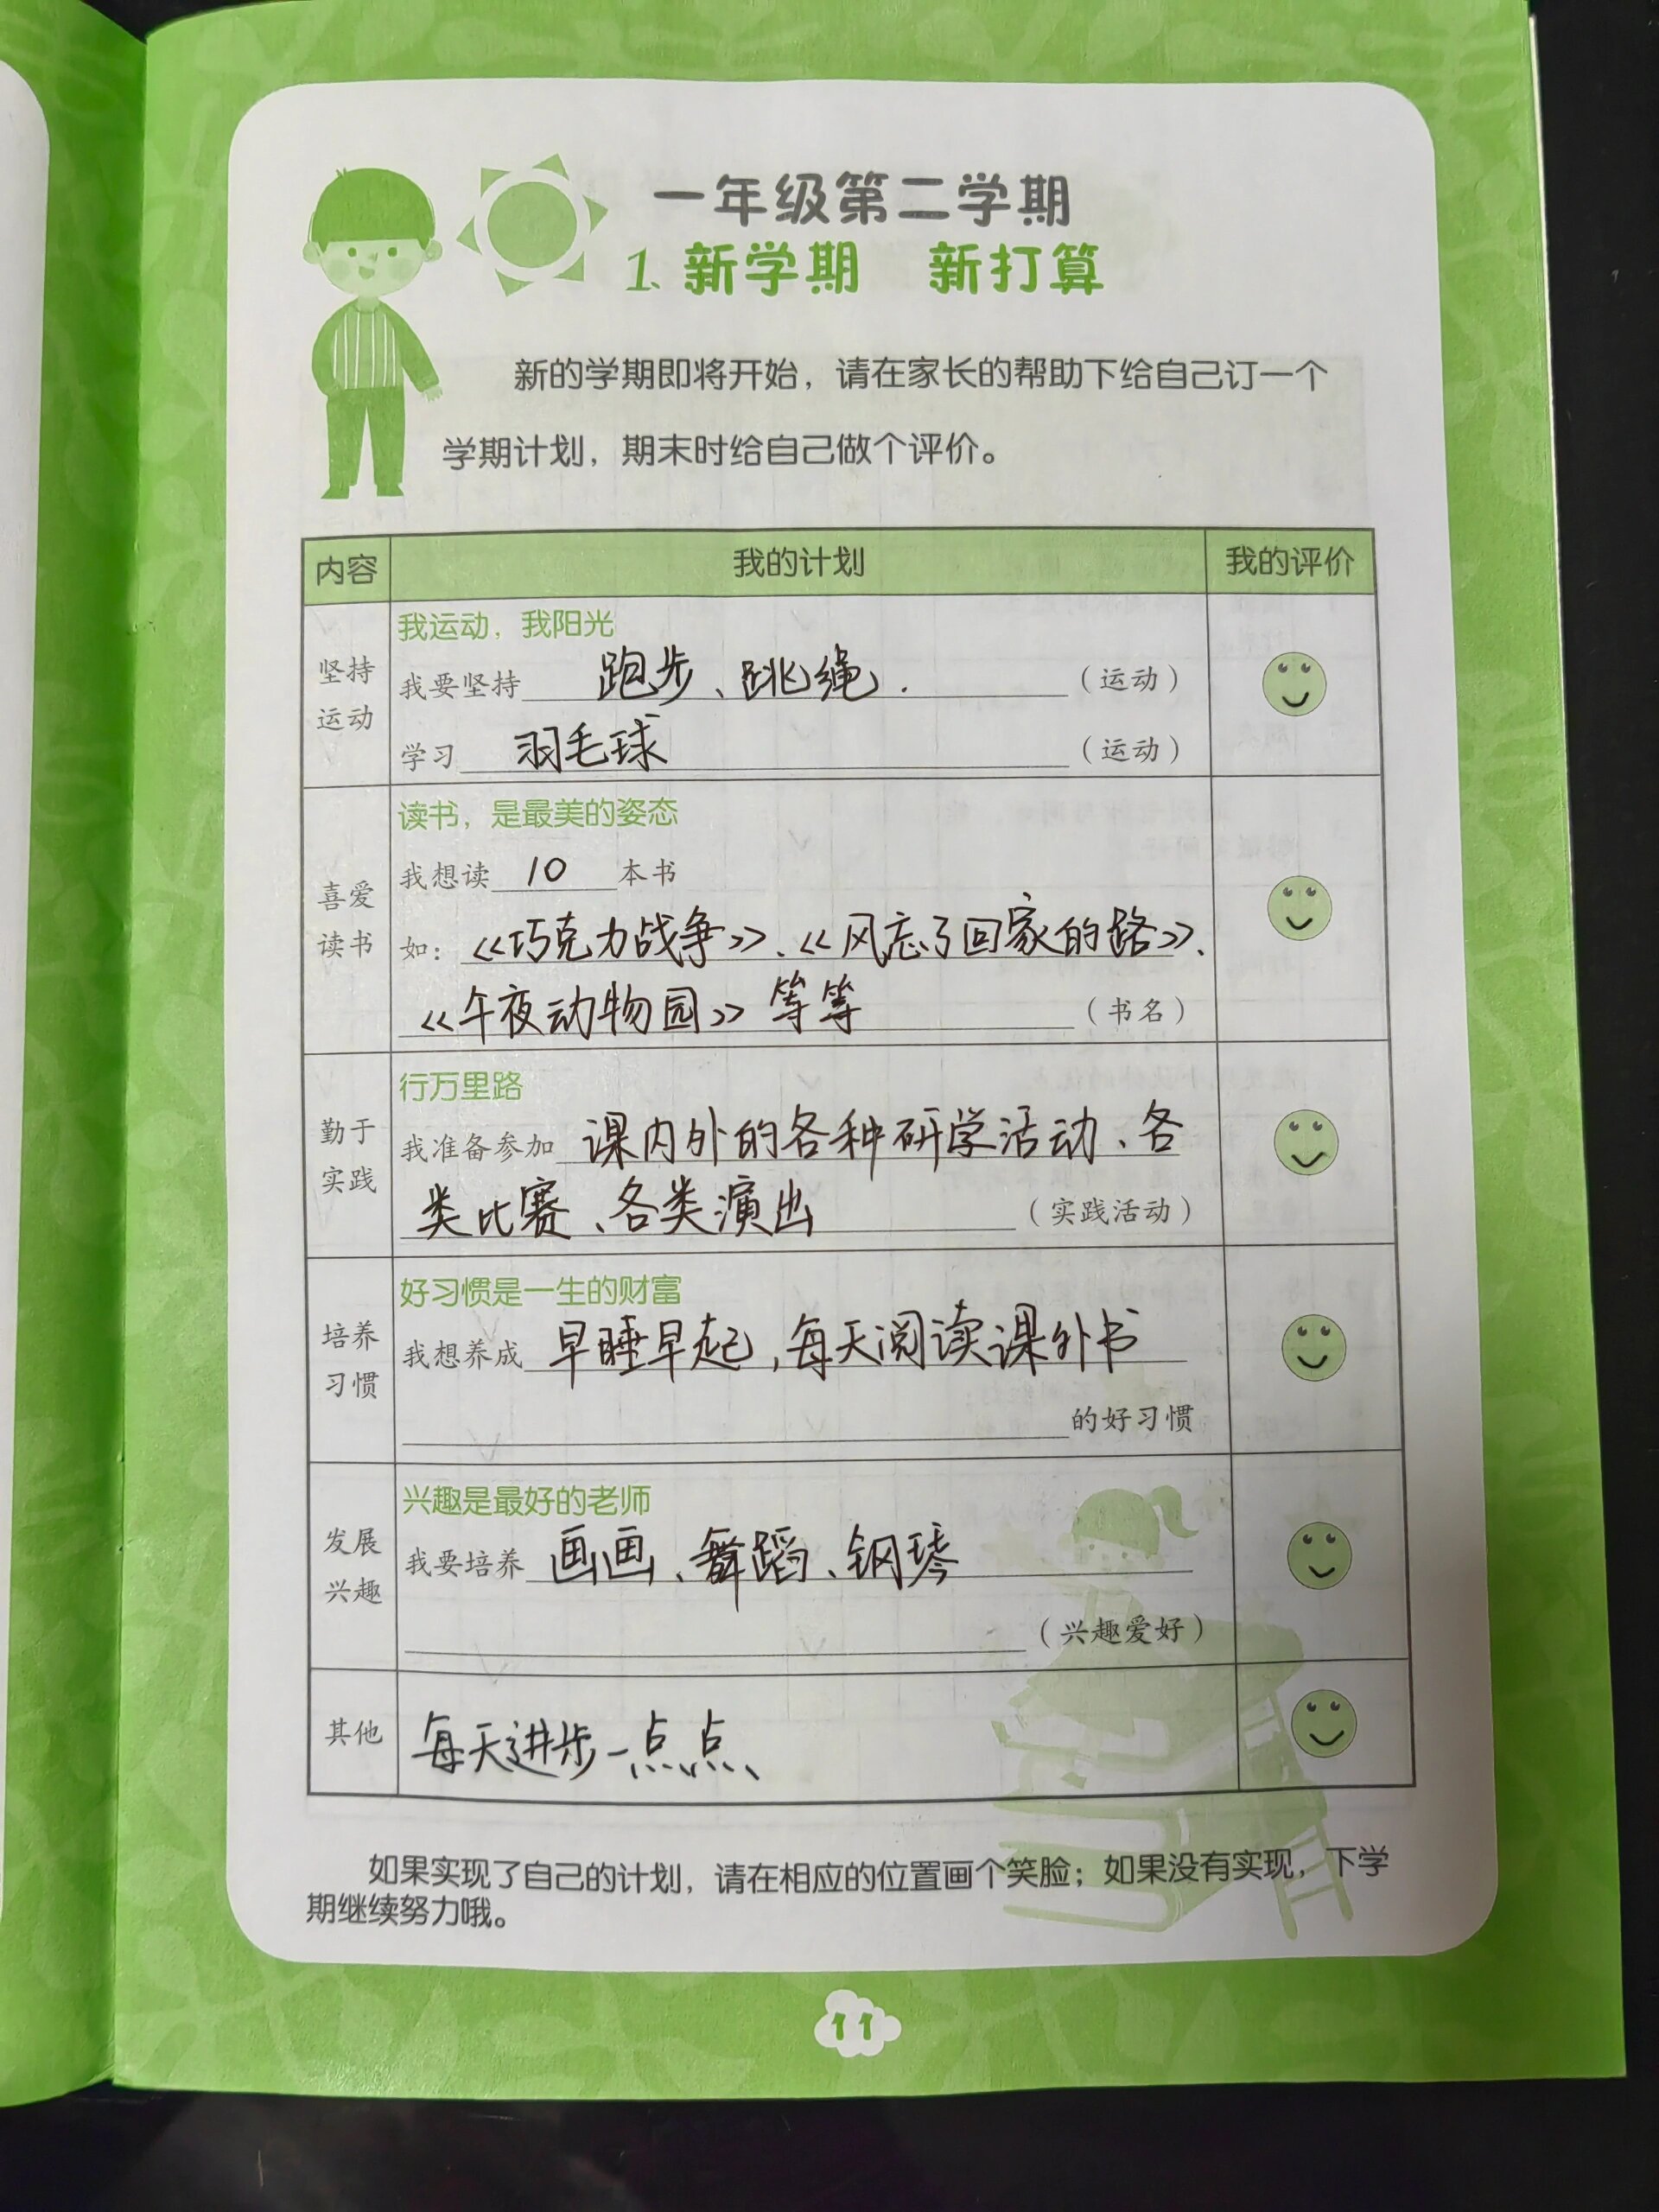 一年级第二学期
1、新学期 新打算
新的学期即将开始，请在家长的帮助下给自己订一个
学期计划，期末时给自己做个评价。
内容 我的计划 我的评价
坚持
运动
我运动，我阳光
我要坚持 跑步、跳绳. （运动）
学习 羽毛球 （运动）
喜爱
读书
读书，是最美的姿态
我想读 10 本书
如：《巧克力战争》、《风忘了回家的路》、
《午夜动物园》等等 （书名）
勤于
实践
行万里路
我准备参加 课内外的各种研学活动、各
类比赛、各类演出 （实践活动）
培养
习惯
好习惯是一生的财富
我想养成 早睡早起，每天阅读课外书
的好习惯
发展
兴趣
兴趣是最好的老师
我要培养 画画、舞蹈、钢琴
（兴趣爱好）
其他
每天进步一点点、
如果实现了自己的计划，请在相应的位置画个笑脸；如果没有实现，下学
期继续努力哦。
11